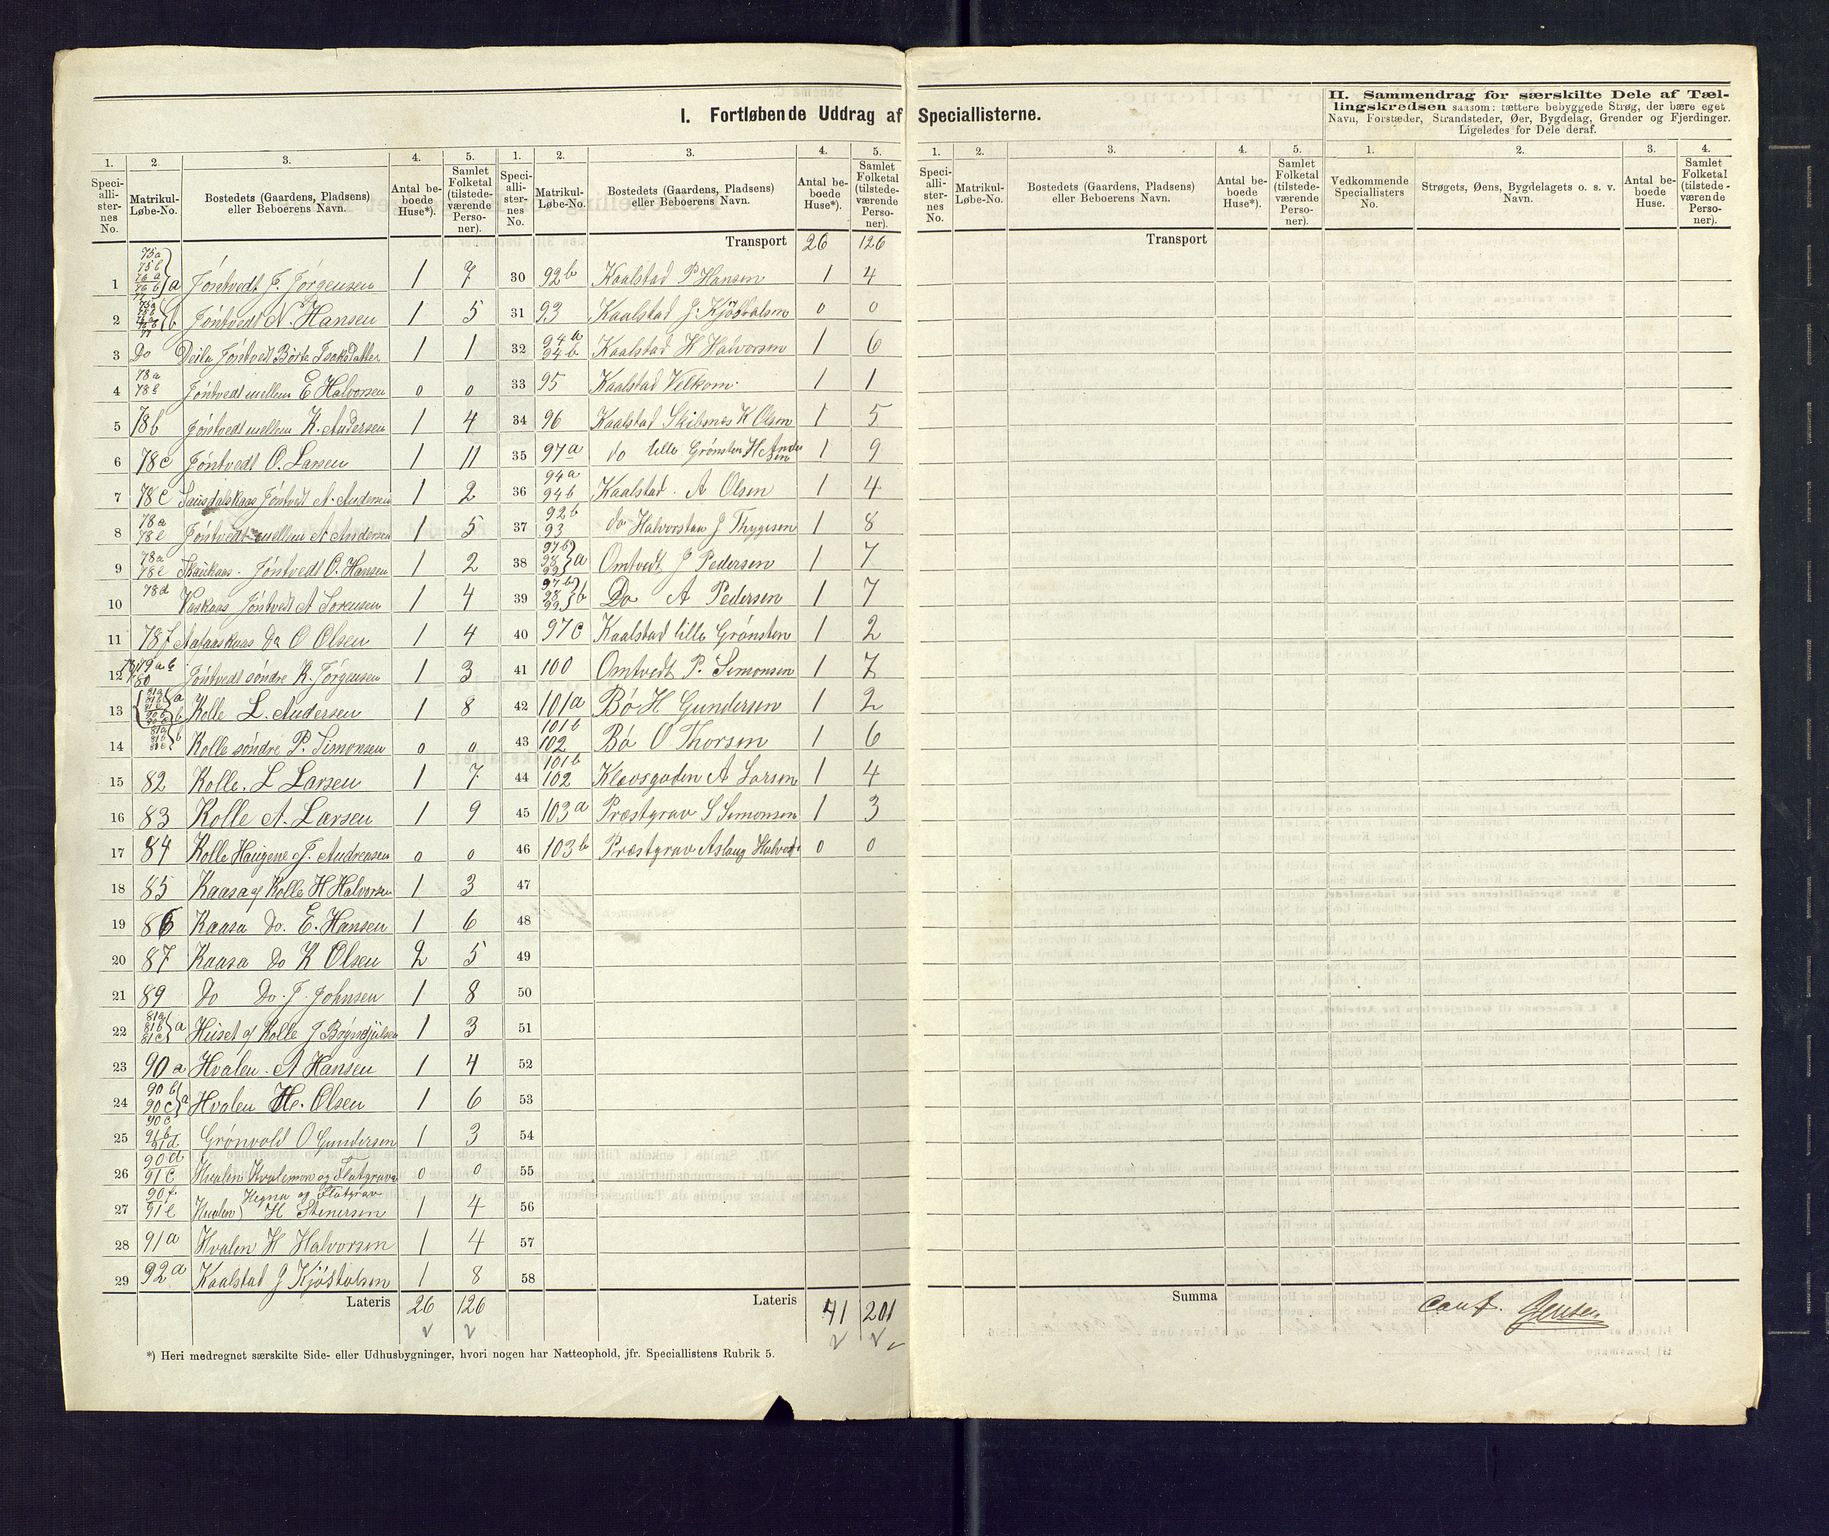 I. Fortløbende Uddrag af Speciallisterne.
II. Sammendrag for særskilte Dele af Tællingskredsen saasom: tættere bebyggede Strøg, der bære eget Navn, Forstæder, Strandsteder, Øer, Bygdelag, Grender og Fjerdinger. Ligeledes for Dele deraf.
1. 2 3. 4. 5.
Speciallisternes No. Matrikul-Løbe-No. Bostedets (Gaardens, Pladsens) eller Beboerens Navn. Antal beboede Huse*). Samlet Folketal (tilstedeværende Personer).
1 75a 75b 76a 76b 77 a Jøntvedt J. Jørgensen 1 7
2 75a 75b 76a 76b 77 b Jøntvedt N. Hansen 1 5
3 Do Deila Jøntvedt Børta Isaksdatter 1 1
4 78a 78e Jøntvedt mellem E Halvorsen 0 0
5 78b Jøntvedt mellem K. Andersen 1 4
6 78c Jøntvedt O. Larsen 1 11
7 78c Jøntvedt A. Andersen 1 2
8 78a 78e Jøntvedt mellem A Andersen 1 5
9 78a 78e Jøntvedt O. Hansen 1 2
10 78d Jøntvedt A Sørensen 1 4
11 78f Do O Olsen 1 4
12 79a b 80 Jøntvedt søndre K. Jørgensen 1 3
13 Kolle L. Andersen 1 8
14 Kolle søndre P. Simonsen 0 0
15 82 Kolle. L Larsen 1 7
16 83 Kolle A. Larsen 1 9
17 84 Kolle Haugene J. Andreasen 0 0
18 85 Kaasa af Kolle H Halvorsen 1 3
19 86 Kaasa Do. E. Hansen 1 6
20 87 Kaasa Do K Olsen 2 5
21 89 Do Do. J. Johnsen 1 8
22 81a 81b 81c a Huset af Kolle J Brynjulsen 1 3
23 90a Hvalen. A Hansen 1 4
24 90b 90c a Hvalen H. Olsen 1 6
25 90c 91b 91d Grønvold O Gundersen 1 3
26 90d 91c Hvalen Kvalemon og Flatgrav 0 0
27 90f 91e Hvalen Hegna og Flatgrav H Stenersen 1 4
28 91a Hvalen H Halvorsen 1 4
29 92a Kaalstad J Kjøstolsen 1 8
Lateris 26 126
1. 2. 3. 4. 5.
Speciallisternes No. Matrikul-Løbe-No. Bostedets (Gaardens, Pladsens) eller Beboerens Navn. Antal beboede Huse*). Samlet Folketal (tilstedeværende Personer).
Transport 26 126
30 92b Kaalstad P Hansen 1 4
31 93 Kaalstad J. Kjøstolsen 0 0
32 94a 94b Kaalstad H Halvorsen 1 6
33 95 Kaalstad Velkom. 1 1
34 96 Kaalstad Skibsnes K Olsen 1 5
35 97a do lille Grønsten H Andersen 1 9
36 94a 94b Kaalstad. A Olsen 1 4
37 92b 93 do Halvorstan J Thygesen 1 8
38 97b 98 99 a Omtvedt J Pedersen 1 7
39 97b 98 99 b Do A Pedersen 1 7
40 97c Kaalstad lille Grønsten 1 2
41 100 Omtvedt P. Simonsen 1 7
42 101a Bø H Gundersen 1 2
43 101b 102 Bø O Thorsen 1 6
44 101b 102 Klævsgaden A Larsen 1 4
45 103a Præstgrav S Simonsen 1 3
46 103b Præstgrav Aslaug Halvord 0 0
47
48
49
50
51
52
53
54
55
56
57
58
Lateris 41 201
1. 2. 3. 4. 5.
Speciallisternes No. Matrikul-Løbe-No. Bostedets (Gaardens, Pladsens) eller Beboerens Navn. Antal beboede Huse*). Samlet Folketal (tilstedeværende Personer).
Transport
Summa
1. 2. 3. 4.
Vedkommende Speciallisters No. Strøgets, Øens, Bygdelagets o. s. v. Navn. Antal beboede Huse. Samlet Folketal (tilstedeværende Personer).
Conf. Jensen
*) Heri medregnet særskilte Side- eller Udhusbygninger, hvori nogen har Natteophold, jfr. Speciallistens Rubrik 5.